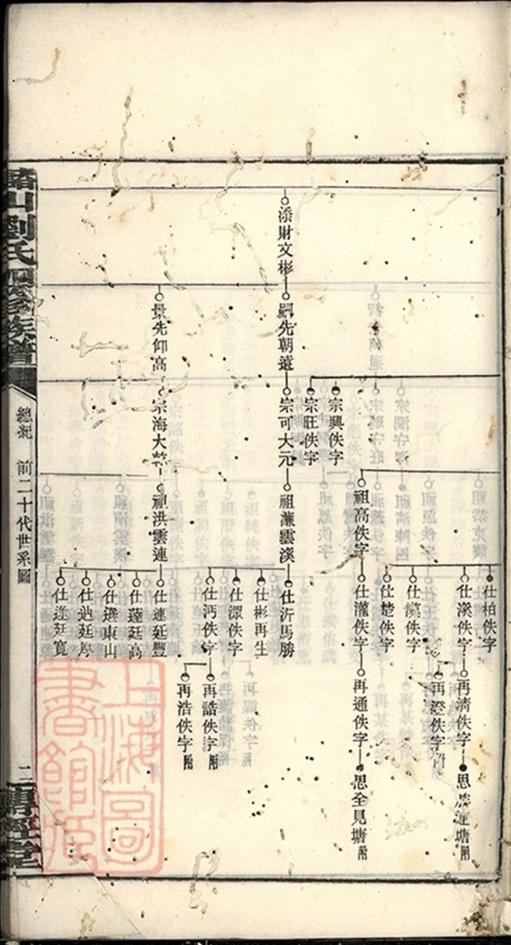 山劉氏四修族譜
總紀 前二十代世系圖
二
添財文彬
嗣先朝遠
景先仰高
宗興佚字
宗旺佚字
宗可大元
宗海大
祖高佚字
祖濂雲溪
祖洪雲連
仕柏佚字
仕漢佚字
仕佚字
仕楚佚字
仕瀧佚字
仕沂馬勝
仕彬再生
仕潔佚字
仕沔佚字
仕連延豐
仕蓬廷高
仕選東山
仕廷
仕進廷寬
再清佚字
再澄佚字附
再通佚字
再誥佚字附
再浩佚字附
思塘附
思全見塘附
上海圖書館藏